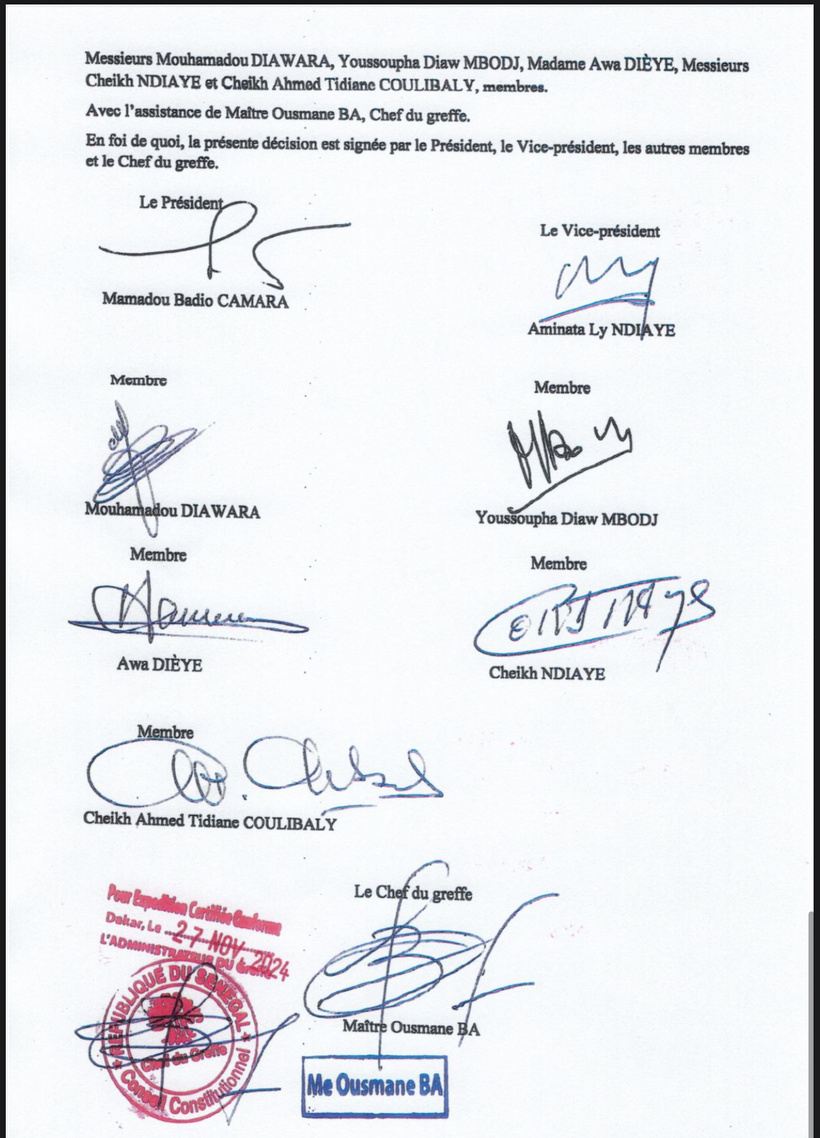 Messieurs Mouhamadou DIAWARA, Youssoupha Diaw MBODJ, Madame Awa DIÈYE, Messieurs
Cheikh NDIAYE et Cheikh Ahmed Tidiane COULIBALY, membres.
Avec l'assistance de Maître Ousmane BA, Chef du greffe.
En foi de quoi, la présente décision est signée par le Président, le Vice-président, les autres membres
et le Chef du greffe.
Le Président
Le Vice-président
Mamadou Badio CAMARA
Aminata Ly NDIAYE
Membre
Membre
Mouhamadou DIAWARA
Youssoupha Diaw MBODJ
Membre
Membre
Awa DIÈYE
Cheikh NDIAYE
Membre
Cheikh Ahmed Tidiane COULIBALY
Le Chef du greffe
Pour Expédition Certifiée Conforme
Dakar, Le 27 NOV 2024
L'ADMINISTRATEUR DU Greffe
RÉPUBLIQUE DU SENEGAL
Chef du Greffe
Conseil Constitutionnel
Maître Ousmane BA
Me Ousmane BA